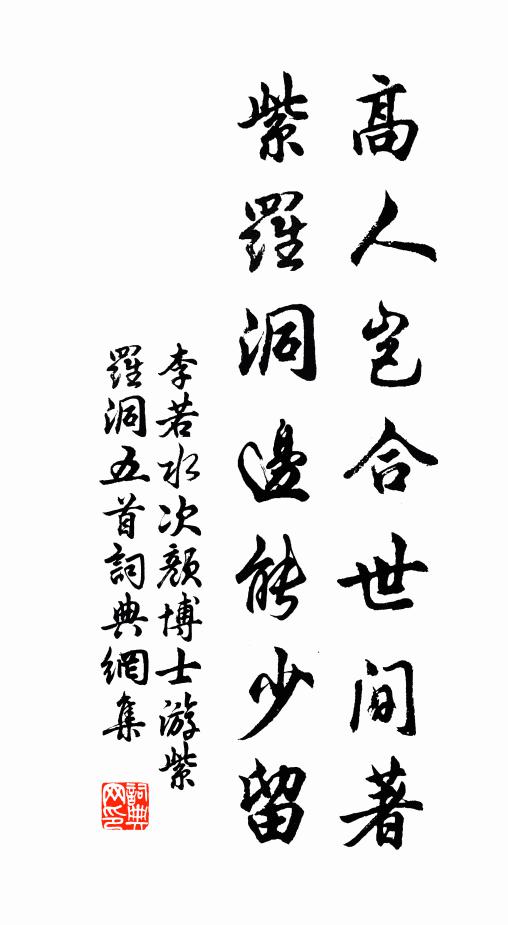 高人岂合世间著
紫羅洞邊能少留
李若水次顏博士游紫
羅洞五首詞典網集
詞典网印